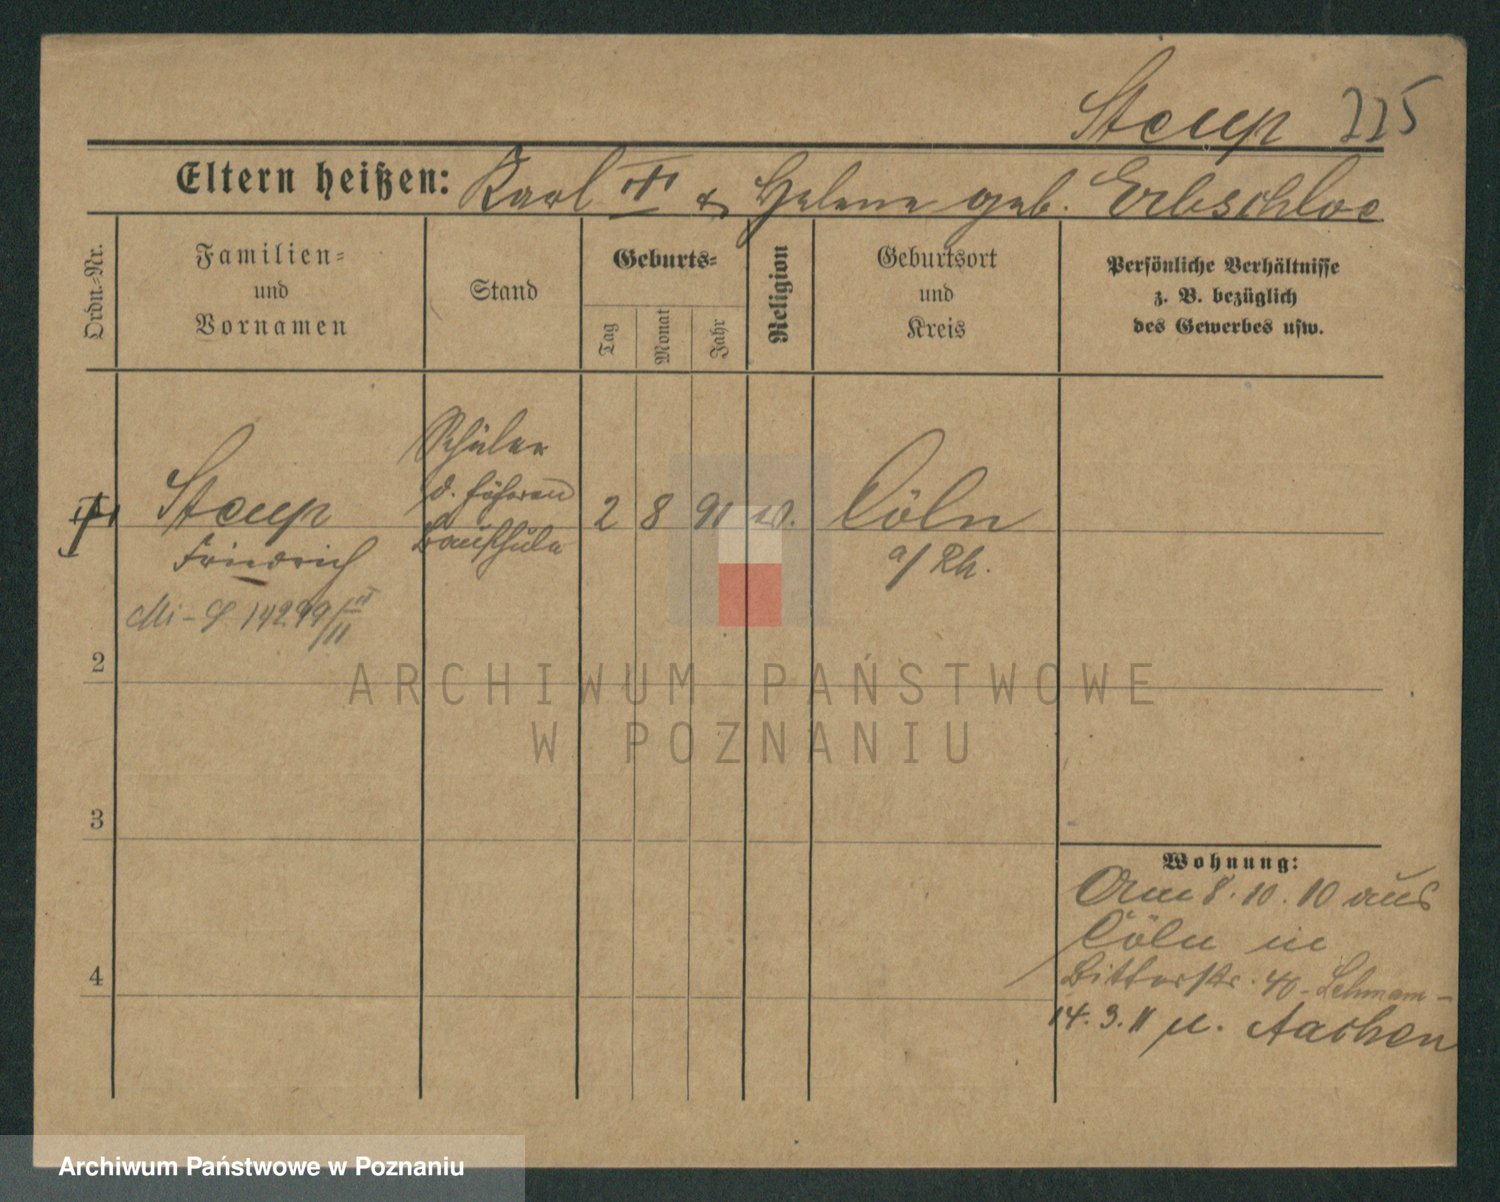 Steup 225
Eltern heißen: Karl & Helene geb. Erbschloe
Ordn.-Nr.
Familien-
und
Vornamen
Stand
Geburts-
Tag
Monat
Jahr
Religion
Geburtsort
und
Kreis
Persönliche Verhältnisse
z. B. bezüglich
des Gewerbes usw.
Schüler
d. höheren
Bauschule
Steup
Friedrich
2 8 91
Cöln
a/ Rh.
Mi-S 14299/11
2
3
4
Wohnung:
Am 8. 10. 10 aus
Cöln in
Bitterstr. 40 - Lehmann -
14. 3. 11 n. Aachen
ARCHIWUM PAŃSTWOWE
W POZNANIU
Archiwum Państwowe w Poznaniu